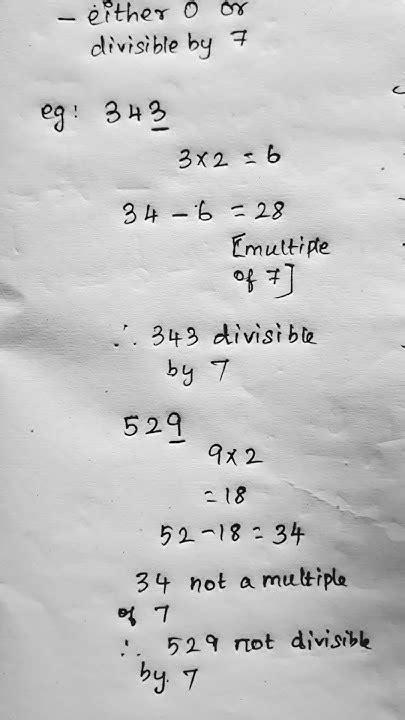 - either 0 or
divisible by 7
eg: 343
3×2 = 6
34 - 6 = 28
[multiple
of 7]
∴ 343 divisible
by 7
529
9×2
= 18
52 - 18 = 34
34 not a multiple
of 7
∴ 529 not divisible
by 7